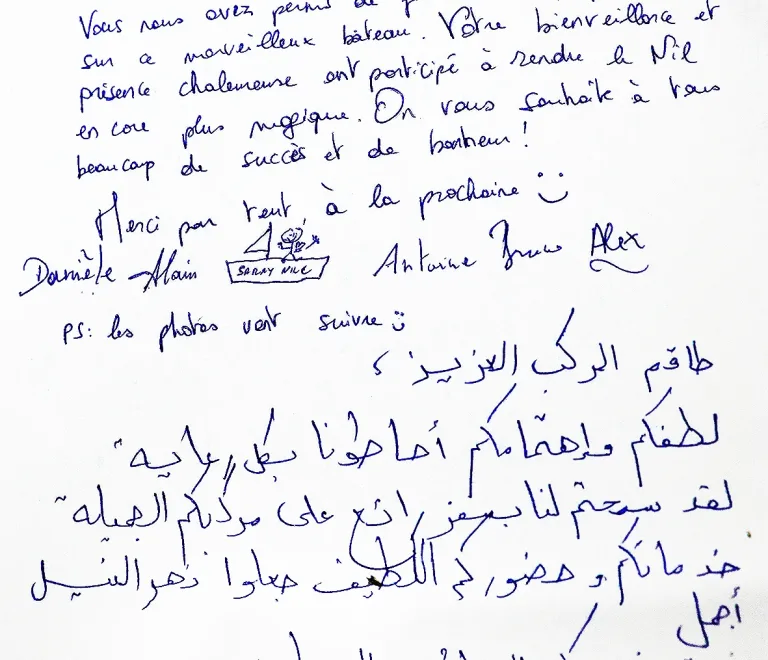 Vous nous avez permis de
sur ce merveilleux bateau. Votre bienveillance et
présence chaleureuse ont participé à rendre le Nil
encore plus magique. On vous souhaite à tous
beaucoup de succès et de bonheur !
Merci pour tout, à la prochaine :)
Danièle Alain SARAY NILE Antoine Bruno Alex
PS: les photos vont suivre :)
طاقم المركب العزيز،
لطفكم وإهتمامكم أحاطونا بكل رعايه
لقد سمحتم لنا بسفر رائع على مركبكم الجميله
خدماتكم و حضوركم اللطيف جعلوا نهر النيل
أجمل